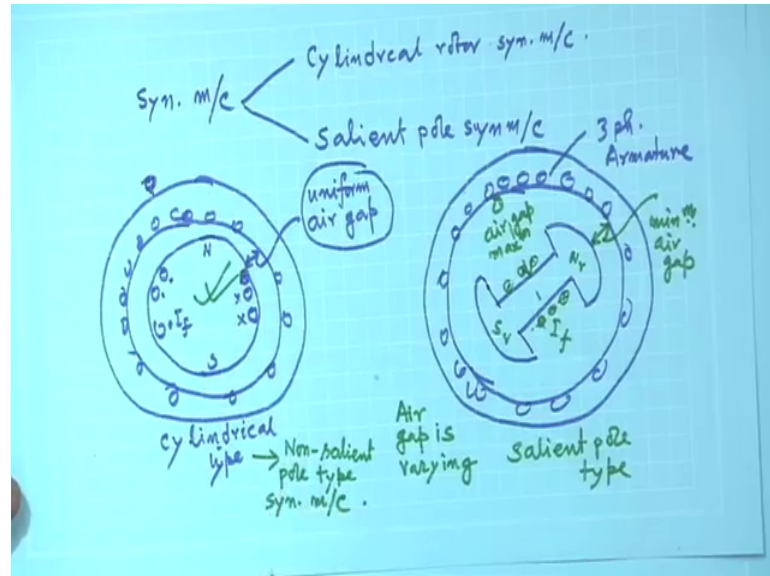 Syn. m/c
Cylindrcal rotor syn. m/c.
Salient pole syn m/c
3 ph.
Armature
uniform
air gap
N
I_f
S
x
x
air gap
max^m
min^m.
air
gap
N_r
S_r
I_f
Cylindrical
type → Non-salient
pole type
syn. m/c.
Air
gap is
varying
Salient pole
type